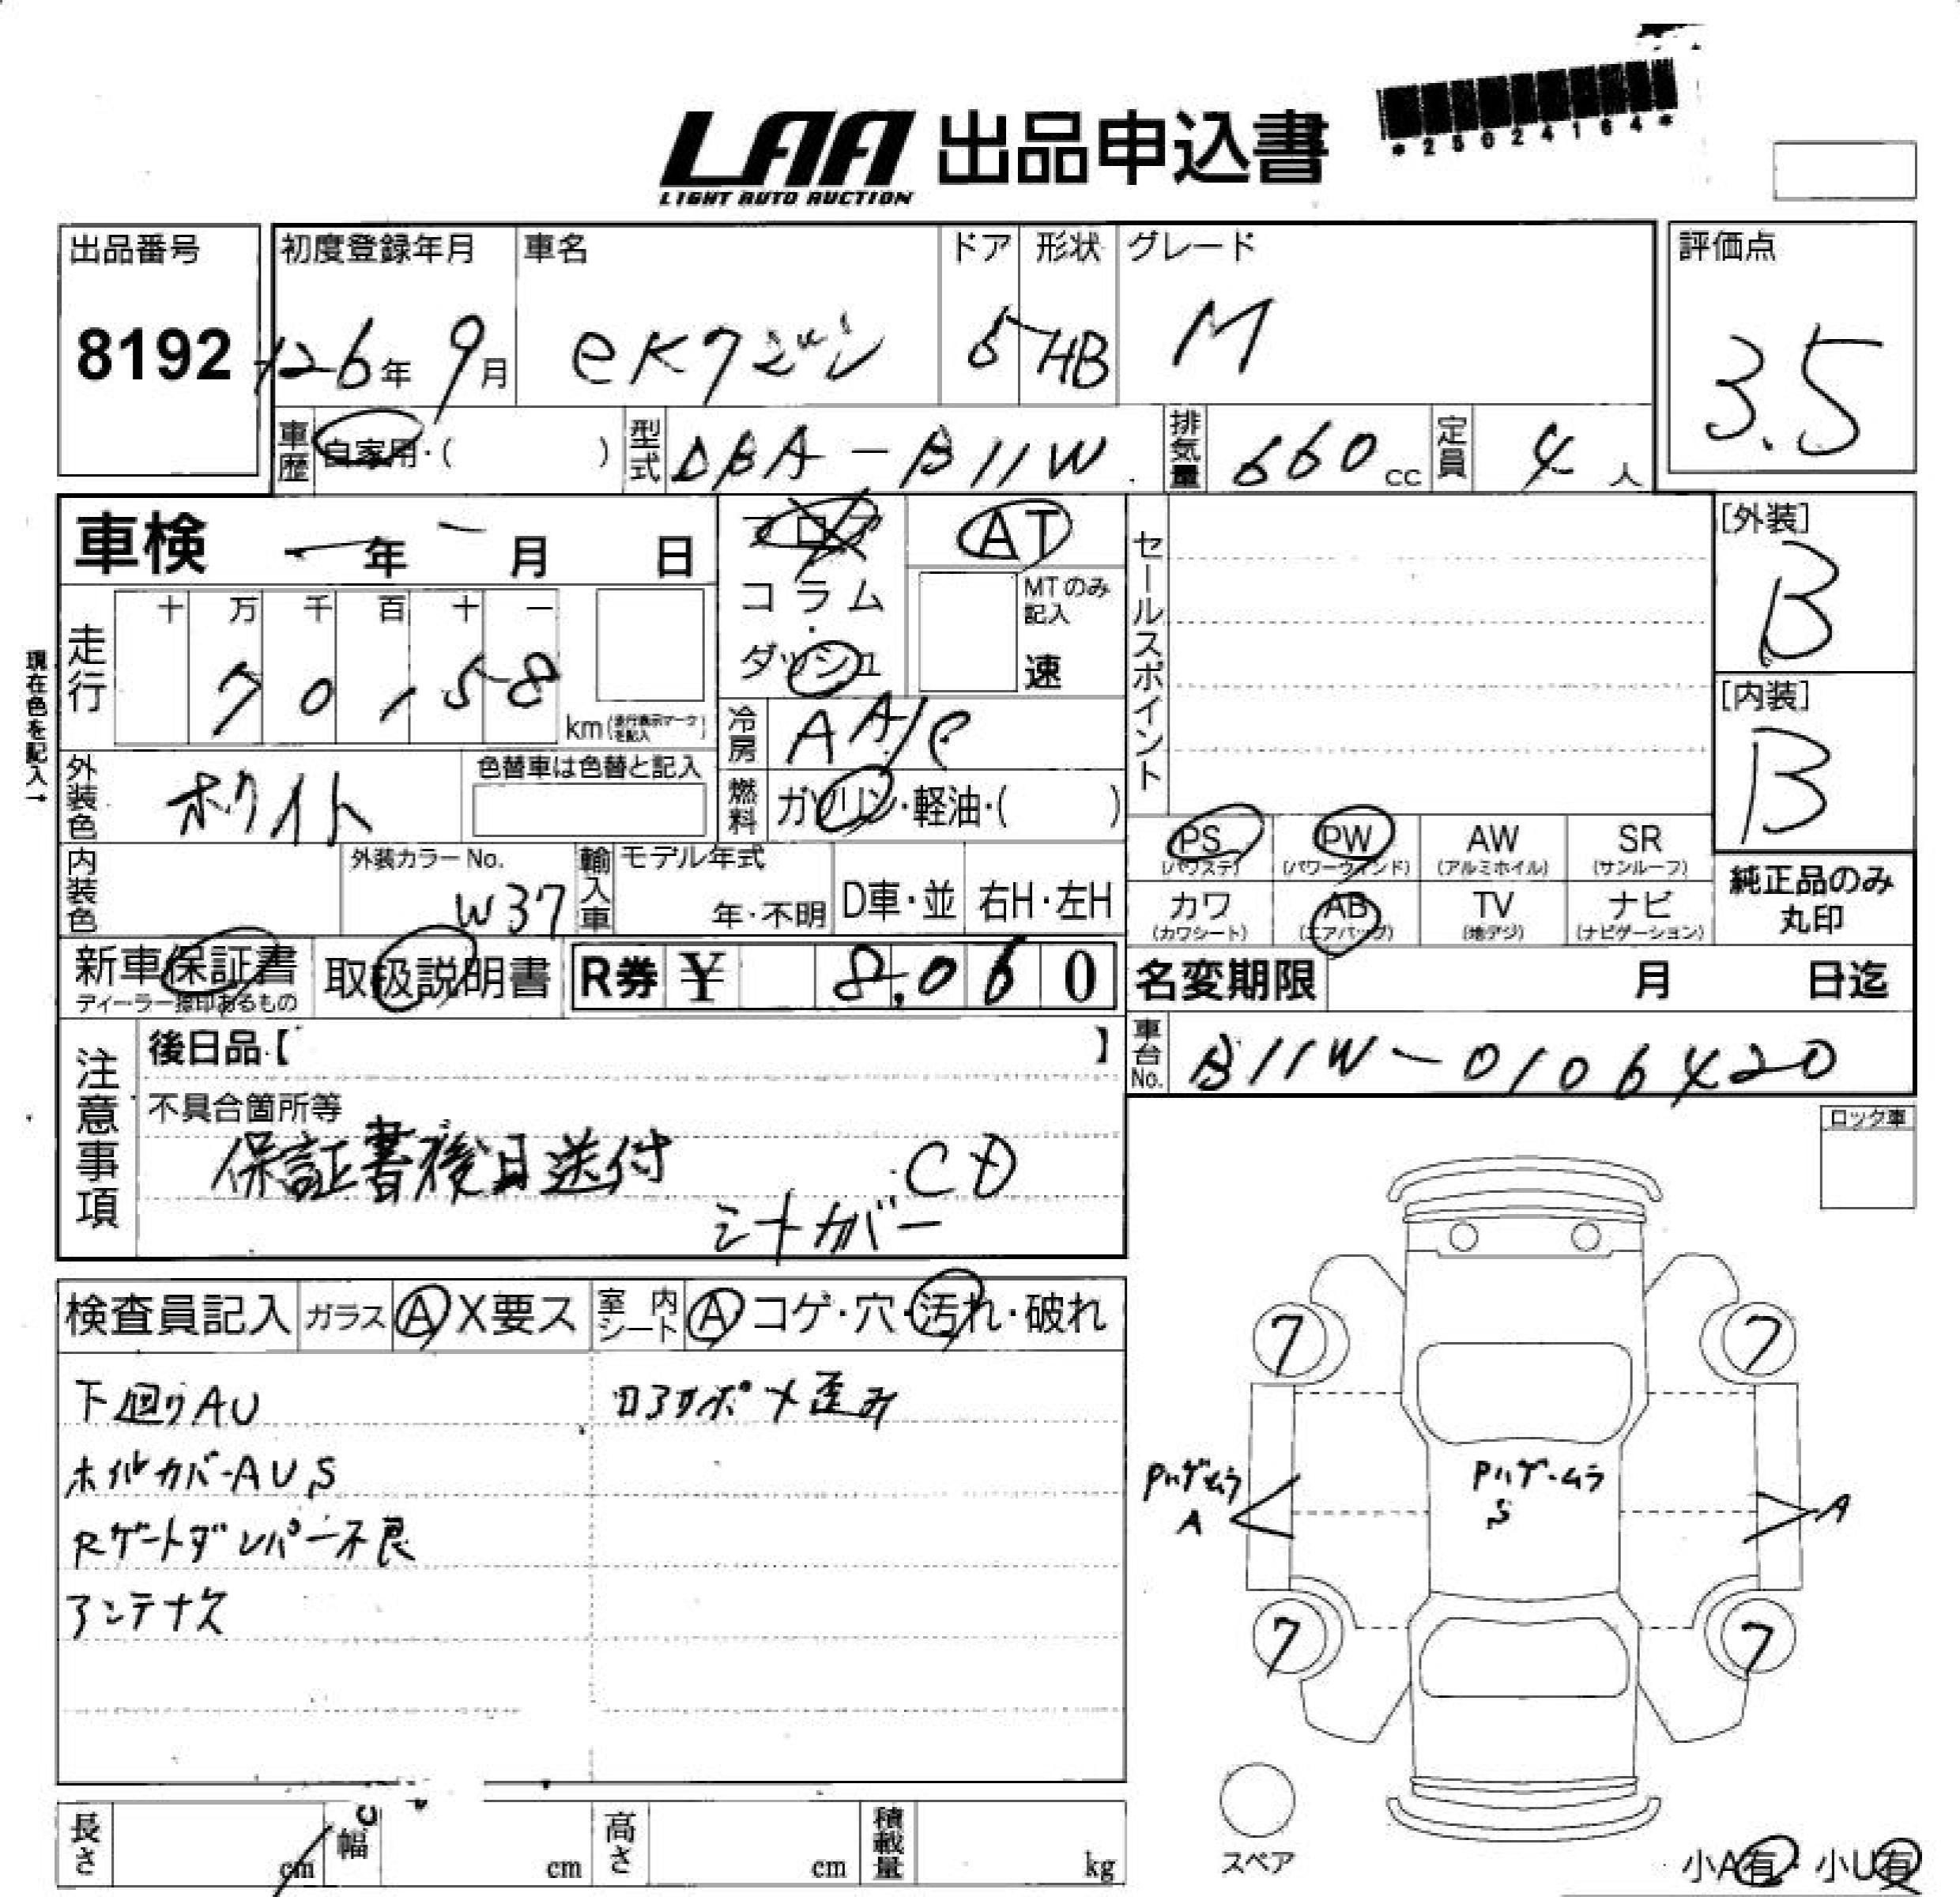 LAA 出品申込書
LIGHT AUTO AUCTION
*25024164*
出品番号
8192
初度登録年月
H26年 9月
車名
eKワゴン
ドア
5
形状
HB
グレード
M
評価点
3.5
車歴
自家用・( )
型式
DBA-B11W
排気量
660 cc
定員
4 人
車検 - 年 - 月 日
フロア
コラム
・
ダッシュ
AT
MTのみ
記入
速
セールスポイント
[外装]
B
[内装]
B
現在色を記入→
走行
十 万 千 百 十 一
7 0 1 5 8
km(走行表示マークを記入)
冷房
AA/C
燃料
ガソリン・軽油・( )
外装色
ホワイト
色替車は色替と記入
内装色
外装カラーNo.
W37
輸入車
モデル年式
年・不明
D車・並
右H・左H
PS
(パワステ)
PW
(パワーウィンド)
AW
(アルミホイル)
SR
(サンルーフ)
カワ
(カワシート)
AB
(エアバッグ)
TV
(地デジ)
ナビ
(ナビゲーション)
純正品のみ
丸印
新車保証書
ディーラー捺印あるもの
取扱説明書
R券 ¥ 8,060
名変期限 月 日迄
車台No.
B11W-0106420
注意事項
後日品【 】
不具合箇所等
保証書後日送付 CD
シートカバー
ロック車
検査員記入
ガラス
A X要ス
室内シート
A コゲ・穴・汚れ・破れ
下回りAU
ホイルカバーAUS
Rゲートダンパー不良
アンテナ欠
コアサポメ歪み
7
7
Pハゲ・ムラ
A
Pハゲ・ムラ
S
A
7
7
スペア
小A有・小U有
長さ
cm
幅
cm
高さ
cm
積載量
kg